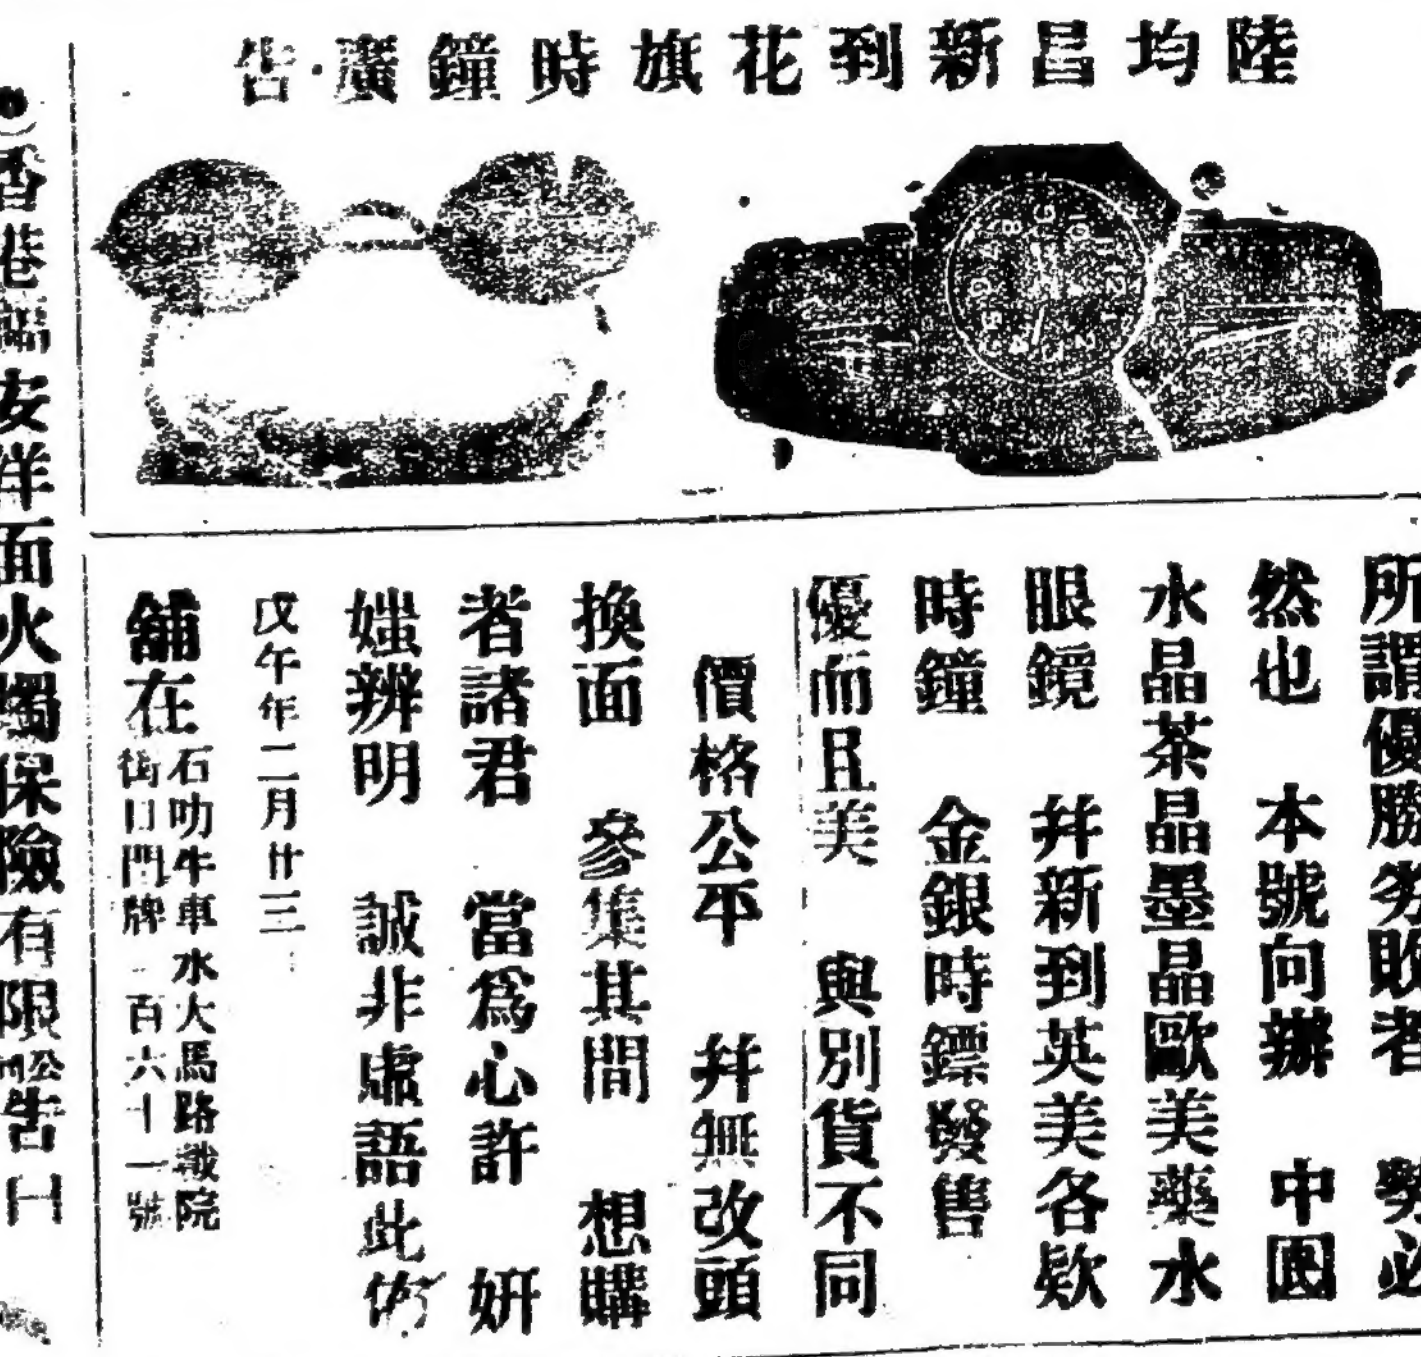 陸均昌新到花旗時鐘廣告
所謂優勝劣敗者　勢必
然也　本號向辦　中國
水晶茶晶墨晶歐美藥水
眼鏡　幷新到英美各欵
時鐘　金銀時鏢發售
優而且美　與別貨不同
價格公平　幷無改頭
換面　參集其間　想購
者諸君　當爲心許　妍
媸辨明　誠非虛語此佈
戊午年二月廿三
舖在
石叻牛車水大馬路戲院
街口門牌一百六十一號
香港 安洋面火燭保險有限公司告